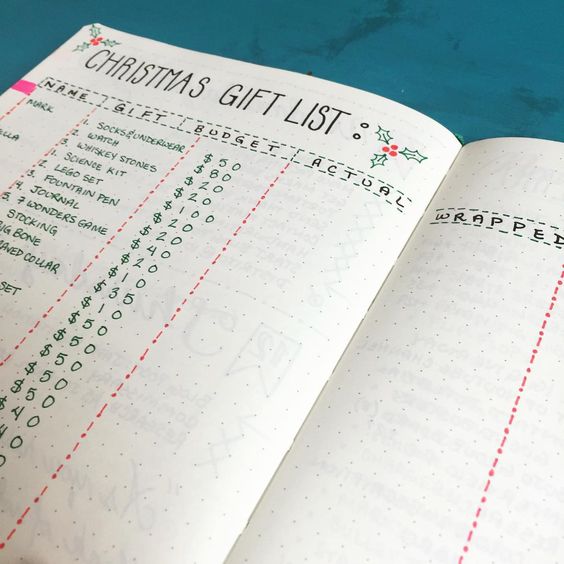 CHRISTMAS GIFT LIST:
NAME GIFT BUDGET ACTUAL
WRAPPED
MARK SOCKS & UNDERWEAR $50
2. WATCH $80
3. WHISKEY STONES $20
1. SCIENCE KIT $20
2. LEGO SET $100
3. FOUNTAIN PEN $20
4. JOURNAL $20
5. 7 WONDERS GAME $40
STOCKING $20
BONE $10
COLLAR $35
SET $10
$50
$50
$50
$50
$40
40